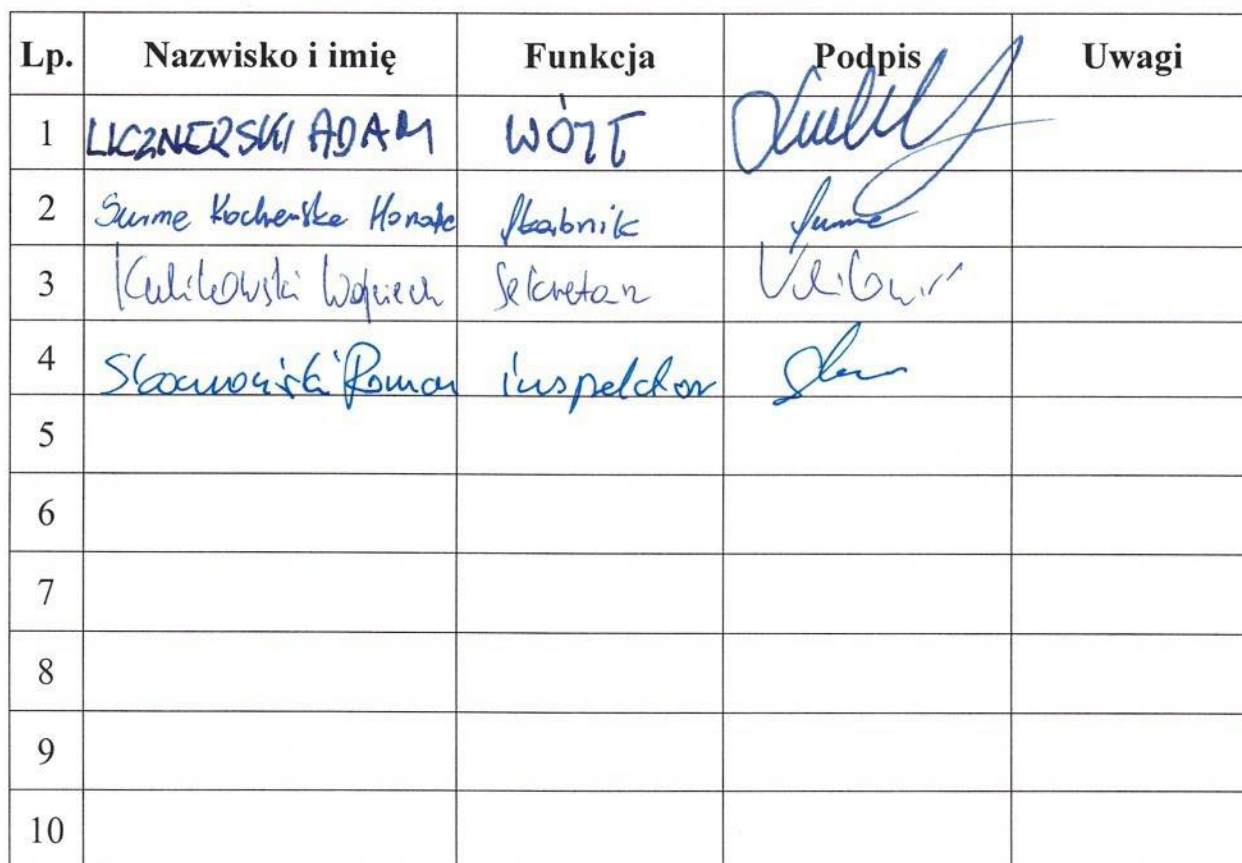 Lp. Nazwisko i imię Funkcja Podpis Uwagi
1 LICZNERSKI ADAM WÓJT
2 Surma Kochańska Honorata Skarbnik
3 Kulikowski Wojciech Sekretarz
4 Roman inspektor
5
6
7
8
9
10